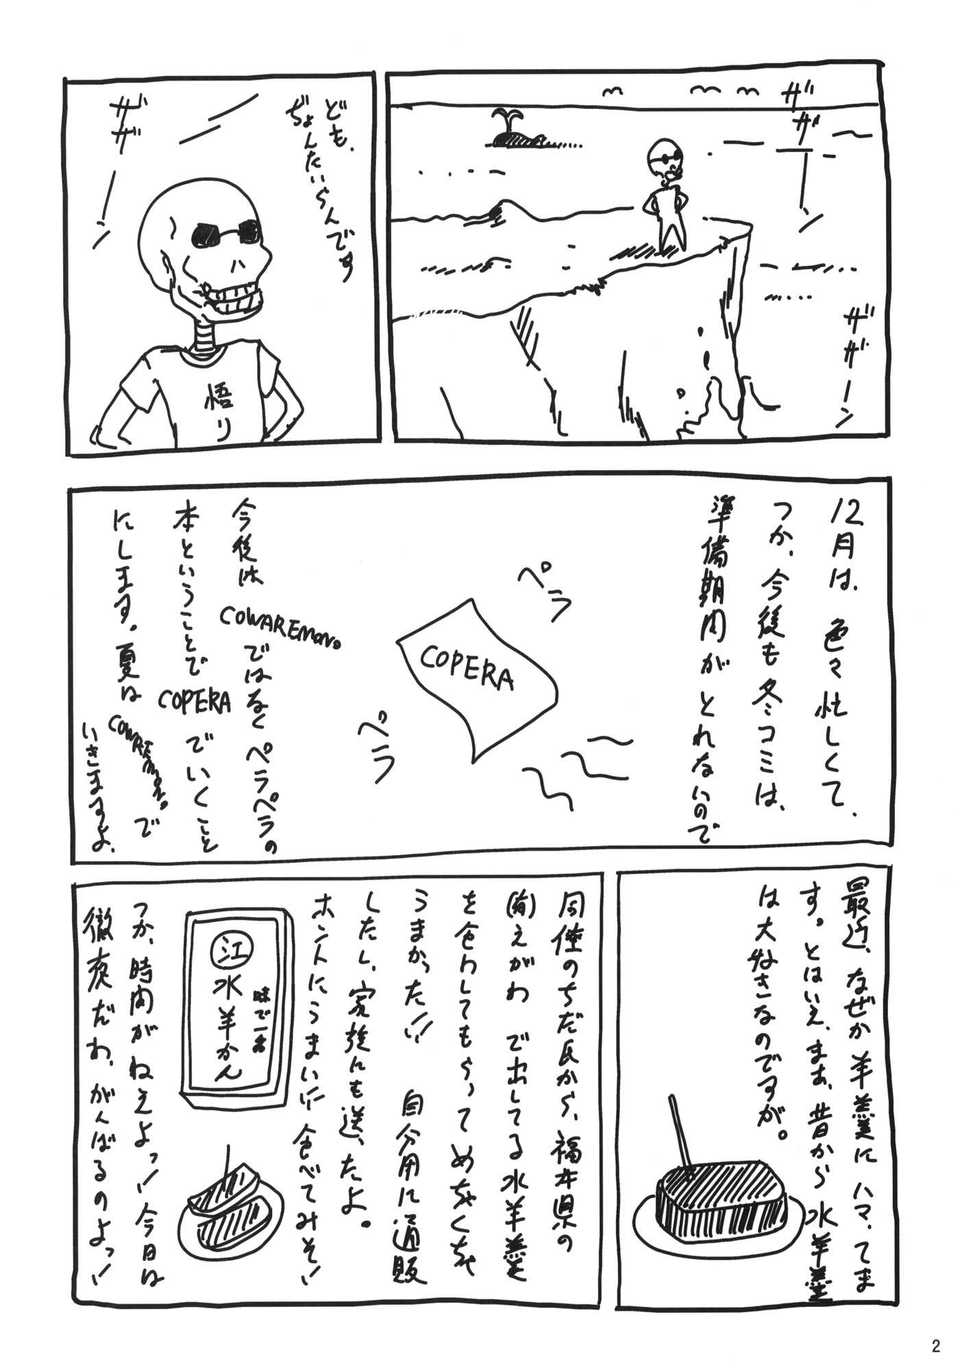 ザ
ザ
ーン
ザザーン
ども、
ぢょんたいらんです
ザ
ザ
ーン
悟り
12月は、色々忙しくて、
つか、今後も冬コミは、
準備期間がとれないので
ペラ
COPERA
ペラ
今後は
COWAREmono
ではなくペラペラの
本ということで
COPERA
でいくこと
にします。夏は
COWAREmono
で
いきますよ、
最近、なぜか羊羹にハマってま
す。とはいえ、まあ、昔から水羊羹
は大好きなのですが。
同僚のちだ氏から、福井県の
(有)えがわで出してる水羊羹
を食わしてもらってめちゃくちゃ
うまかった!!自分用に通販
したし、家族にも送ったよ。
ホントにうまい!!食べてみそ!
江
水羊かん
味で一番
つか、時間がねえよっ!!今日は
徹夜だわ、がんばるのよっ!
2